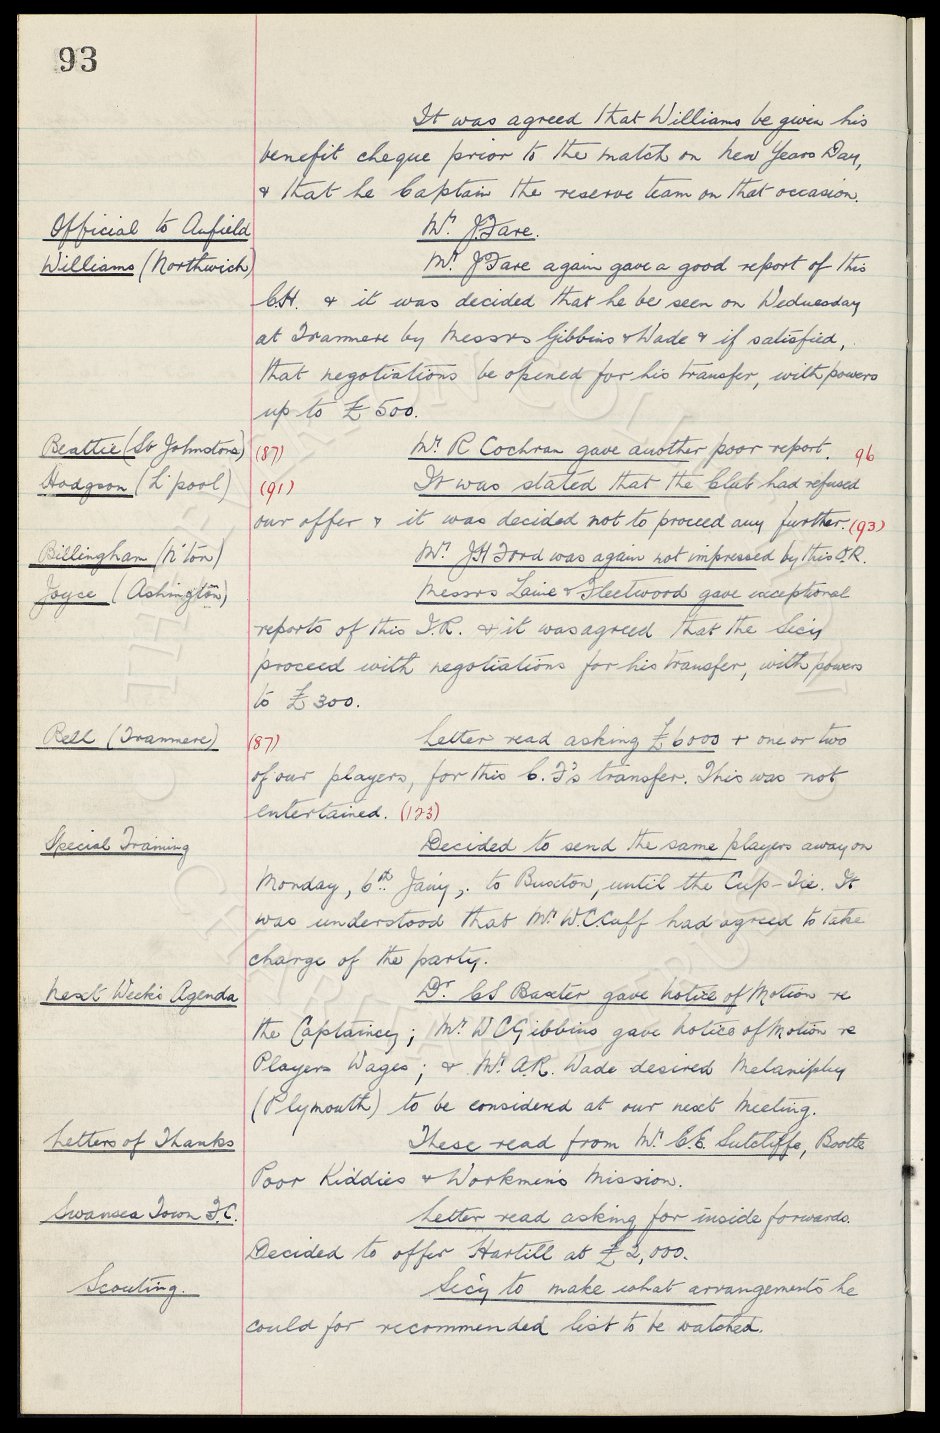 93
It was agreed that Williams be given his
benefit cheque prior to the match on New Years Day,
& that he Captain the reserve team on that occasion.
Official to Anfield Mr. J. Fare.
Williams (Northwich) Mr. J Fare again gave a good report of this
C.H. & it was decided that he be seen on Wednesday
at Tranmere by Messrs Gibbins & Wade & if satisfied,
that negotiations be opened for his transfer, with powers
up to £500.
Beattie (St Johnstons) (87) Mr. R Cochran gave another poor report. 96
Hodgson (L'pool) (91) It was stated that the Club had refused
our offer & it was decided not to proceed any further. (93)
Billingham (N'ton) Mr. J H Ford was again not impressed by this O.R.
Joyce (Ashington) Messrs Laine & Fleetwood gave exceptional
reports of this I.R. & it was agreed that the Sec'y
proceed with negotiations for his transfer, with powers
to £300.
Bell (Tranmere) (87) Letter read asking £6000 & one or two
of our players, for this C.F's transfer. This was not
entertained. (123)
Special Training Decided to send the same players away on
Monday, 6th Jan'y, to Buxton, until the Cup-Tie. It
was understood that Mr. W.C. Cuff had agreed to take
charge of the party.
Next Week's Agenda Dr. C S Baxter gave notice of Motion re
the Captaincy; Mr. W C Gibbins gave notice of Motion re
Players Wages; & Mr. A.R. Wade desired Melaniphy
(Plymouth) to be considered at our next meeting.
Letters of Thanks These read from Mr. C.E. Sutcliffe, Bootle
Poor Kiddies & Workmen's Mission.
Swansea Town F.C. Letter read asking for inside forwards.
Decided to offer Hartill at £2,000.
Scouting. Sec'y to make what arrangements he
could for recommended list to be watched.